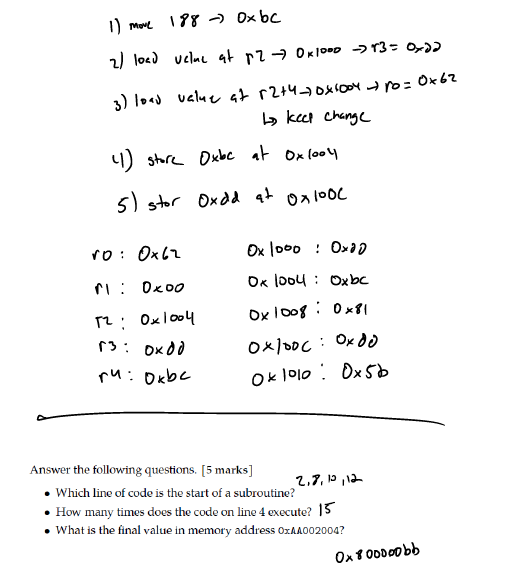 1) move 188 → 0xbc
2) load value at r2 → 0x1000 → r3 = 0xdd
3) load value at r2+4 → 0x1004 → r0 = 0x62
↳ keep change
4) store 0xbc at 0x1004
5) stor 0xdd at 0x100C
r0 : 0x62 0x1000 : 0xdd
r1 : 0x00 0x1004 : 0xbc
r2 : 0x1004 0x1008 : 0x81
r3 : 0xdd 0x100C : 0xdd
r4 : 0xbc 0x1010 : 0x5b
Answer the following questions. [5 marks]
• Which line of code is the start of a subroutine? 2,8,10,12
• How many times does the code on line 4 execute? 15
• What is the final value in memory address 0xAA002004?
0x800000bb